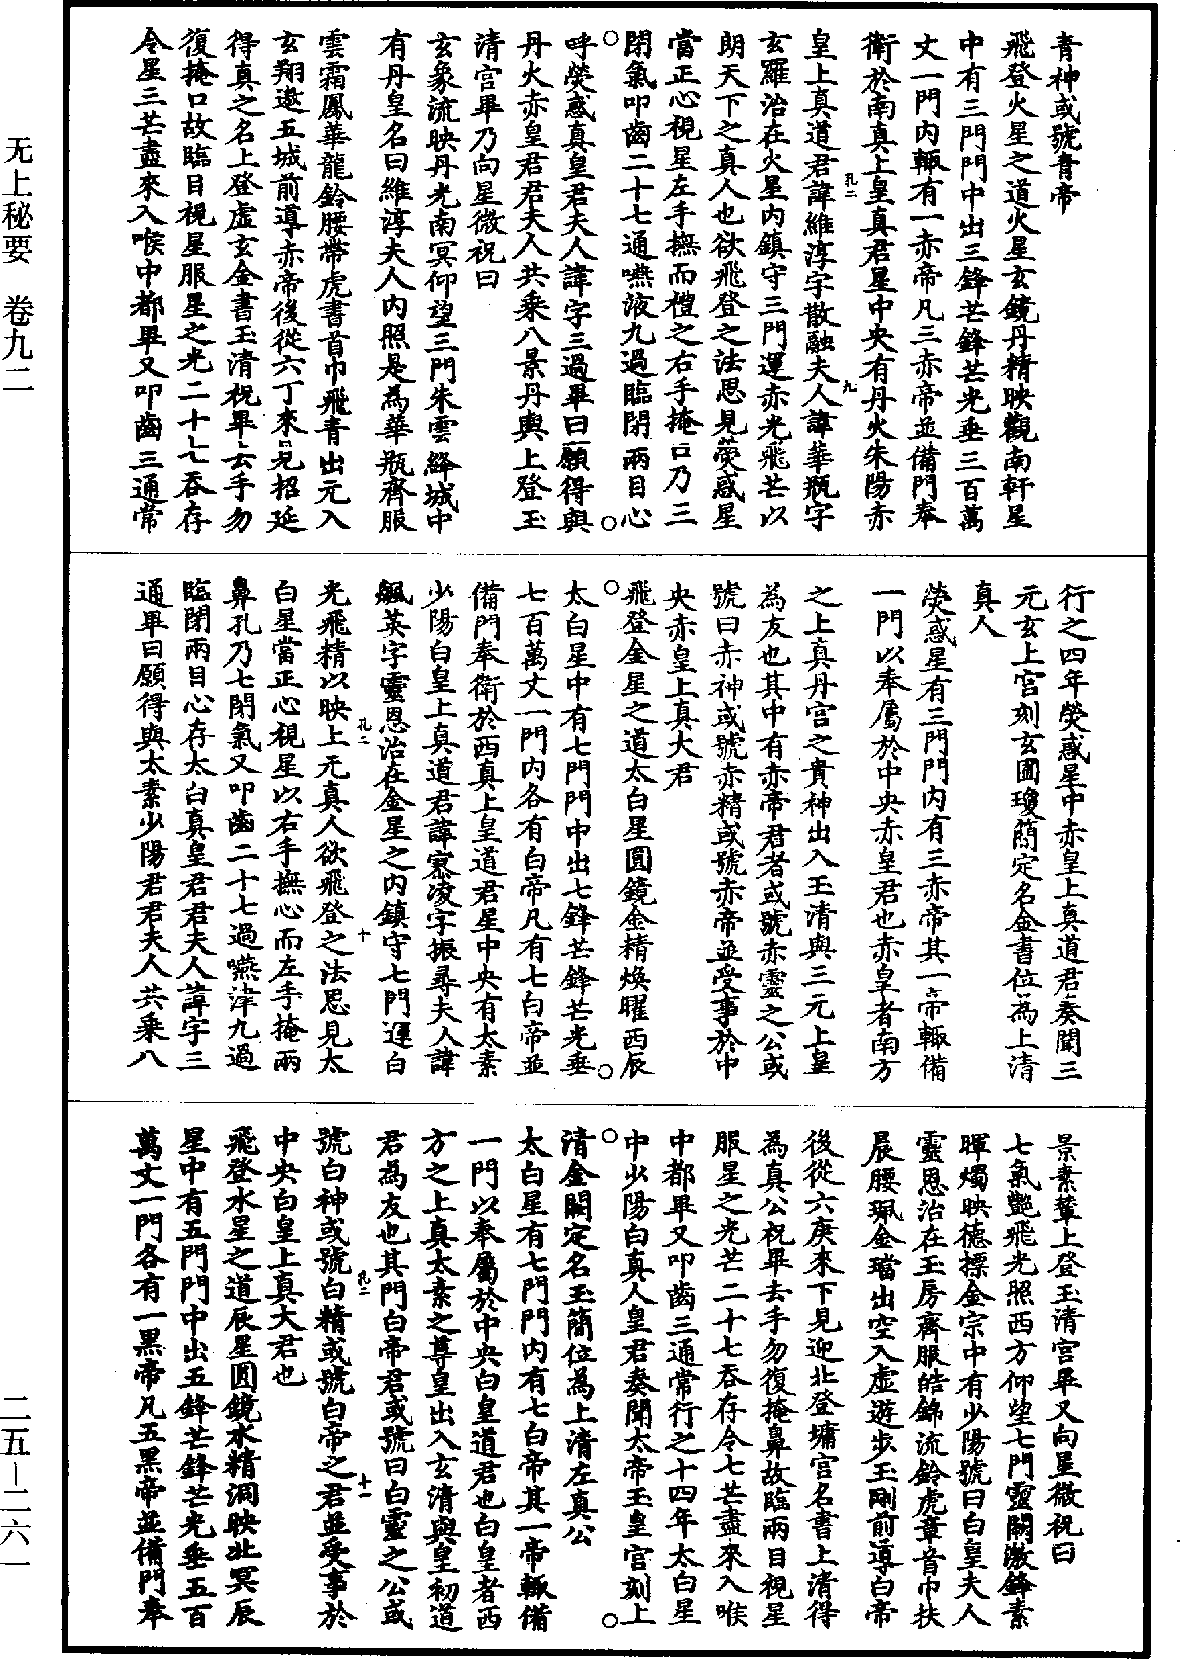 青神或號青帝
飛登火星之道火星玄鏡丹精映觀南軒星
中有三門門中出三鋒芒鋒芒光垂三百萬
丈一門內輒有一赤帝凡三赤帝並備門奉
衛於南真上皇真君星中央有丹火朱陽赤
皇上真道君諱維淳字散融夫人諱華瓶字
孔二
九
玄羅治在火星內鎮守三門運赤光飛芒以
朗天下之真人也欲飛登之法思見熒惑星
當正心視星左手撫而禮之右手掩口乃三
閉氣叩齒二十七通嚥液九過臨閉兩目心
呼熒惑真皇君夫人諱字三過畢曰願得與
丹火赤皇君君夫人共乘八景丹輿上登玉
清宮畢乃向星微祝曰
玄象流映丹光南冥仰望三門朱雲絳城中
有丹皇名曰維淳夫人內照是為華瓶齊服
雲霜鳳華龍鈴腰帶虎書首巾飛青出元入
玄翔遨五城前導赤帝後從六丁來見招延
得真之名上登虛玄金書玉清祝畢去手勿
復掩口故臨目視星服星之光二十七吞存
令星三芒盡來入喉中都畢又叩齒三通常
行之四年熒惑星中赤皇上真道君奏聞三
元玄上宮刻玄圖瓊簡定名金書位為上清
真人
熒惑星有三門門內有三赤帝其一帝輒備
一門以奉屬於中央赤皇君也赤皇者南方
之上真丹宮之貴神出入玉清與三元上皇
為友也其中有赤帝君者或號赤靈之公或
號曰赤神或號赤精或號赤帝並受事於中
央赤皇上真大君
飛登金星之道太白星圓鏡金精煥曜西辰
太白星中有七門門中出七鋒芒鋒芒光垂
七百萬丈一門內各有白帝凡有七白帝並
備門奉衛於西真上皇道君星中央有太素
少陽白皇上真道君諱寥凌字振尋夫人諱
飆英字靈恩治在金星之內鎮守七門運白
孔二
十
光飛精以映上元真人欲飛登之法思見太
白星當正心視星以右手撫心而左手掩兩
鼻孔乃七閉氣又叩齒二十七過嚥津九過
臨閉兩目心存太白真皇君君夫人諱字三
通畢曰願得與太素少陽君君夫人共乘八
景素輦上登玉清宮畢又向星微祝曰
七氣艷飛光照西方仰望七門靈闕激鋒素
暉燭映德標金宗中有少陽號曰白皇夫人
靈恩治在玉房齊服皓錦流鈴虎章首巾扶
晨腰珮金璫出空入虛遊步玉剛前導白帝
後從六庚來下見迎北登墉宮名書上清得
為真公祝畢去手勿復掩鼻故臨兩目視星
服星之光芒二十七吞存令七芒盡來入喉
中都畢又叩齒三通常行之十四年太白星
中少陽白真人皇君奏聞太帝玉皇宮刻上
清金闕定名玉簡位為上清左真公
太白星有七門門內有七白帝其一帝輒備
一門以奉屬於中央白皇道君也白皇者西
方之上真太素之尊皇出入玄清與皇初道
君為友也其門白帝君或號曰白靈之公或
孔二
十一
號白神或號白精或號白帝之君並受事於
中央白皇上真大君也
飛登水星之道辰星圓鏡水精洞映北冥辰
星中有五門門中出五鋒芒鋒芒光垂五百
萬丈一門各有一黑帝凡五黑帝並備門奉
无上秘要 卷九二
二五－二六一